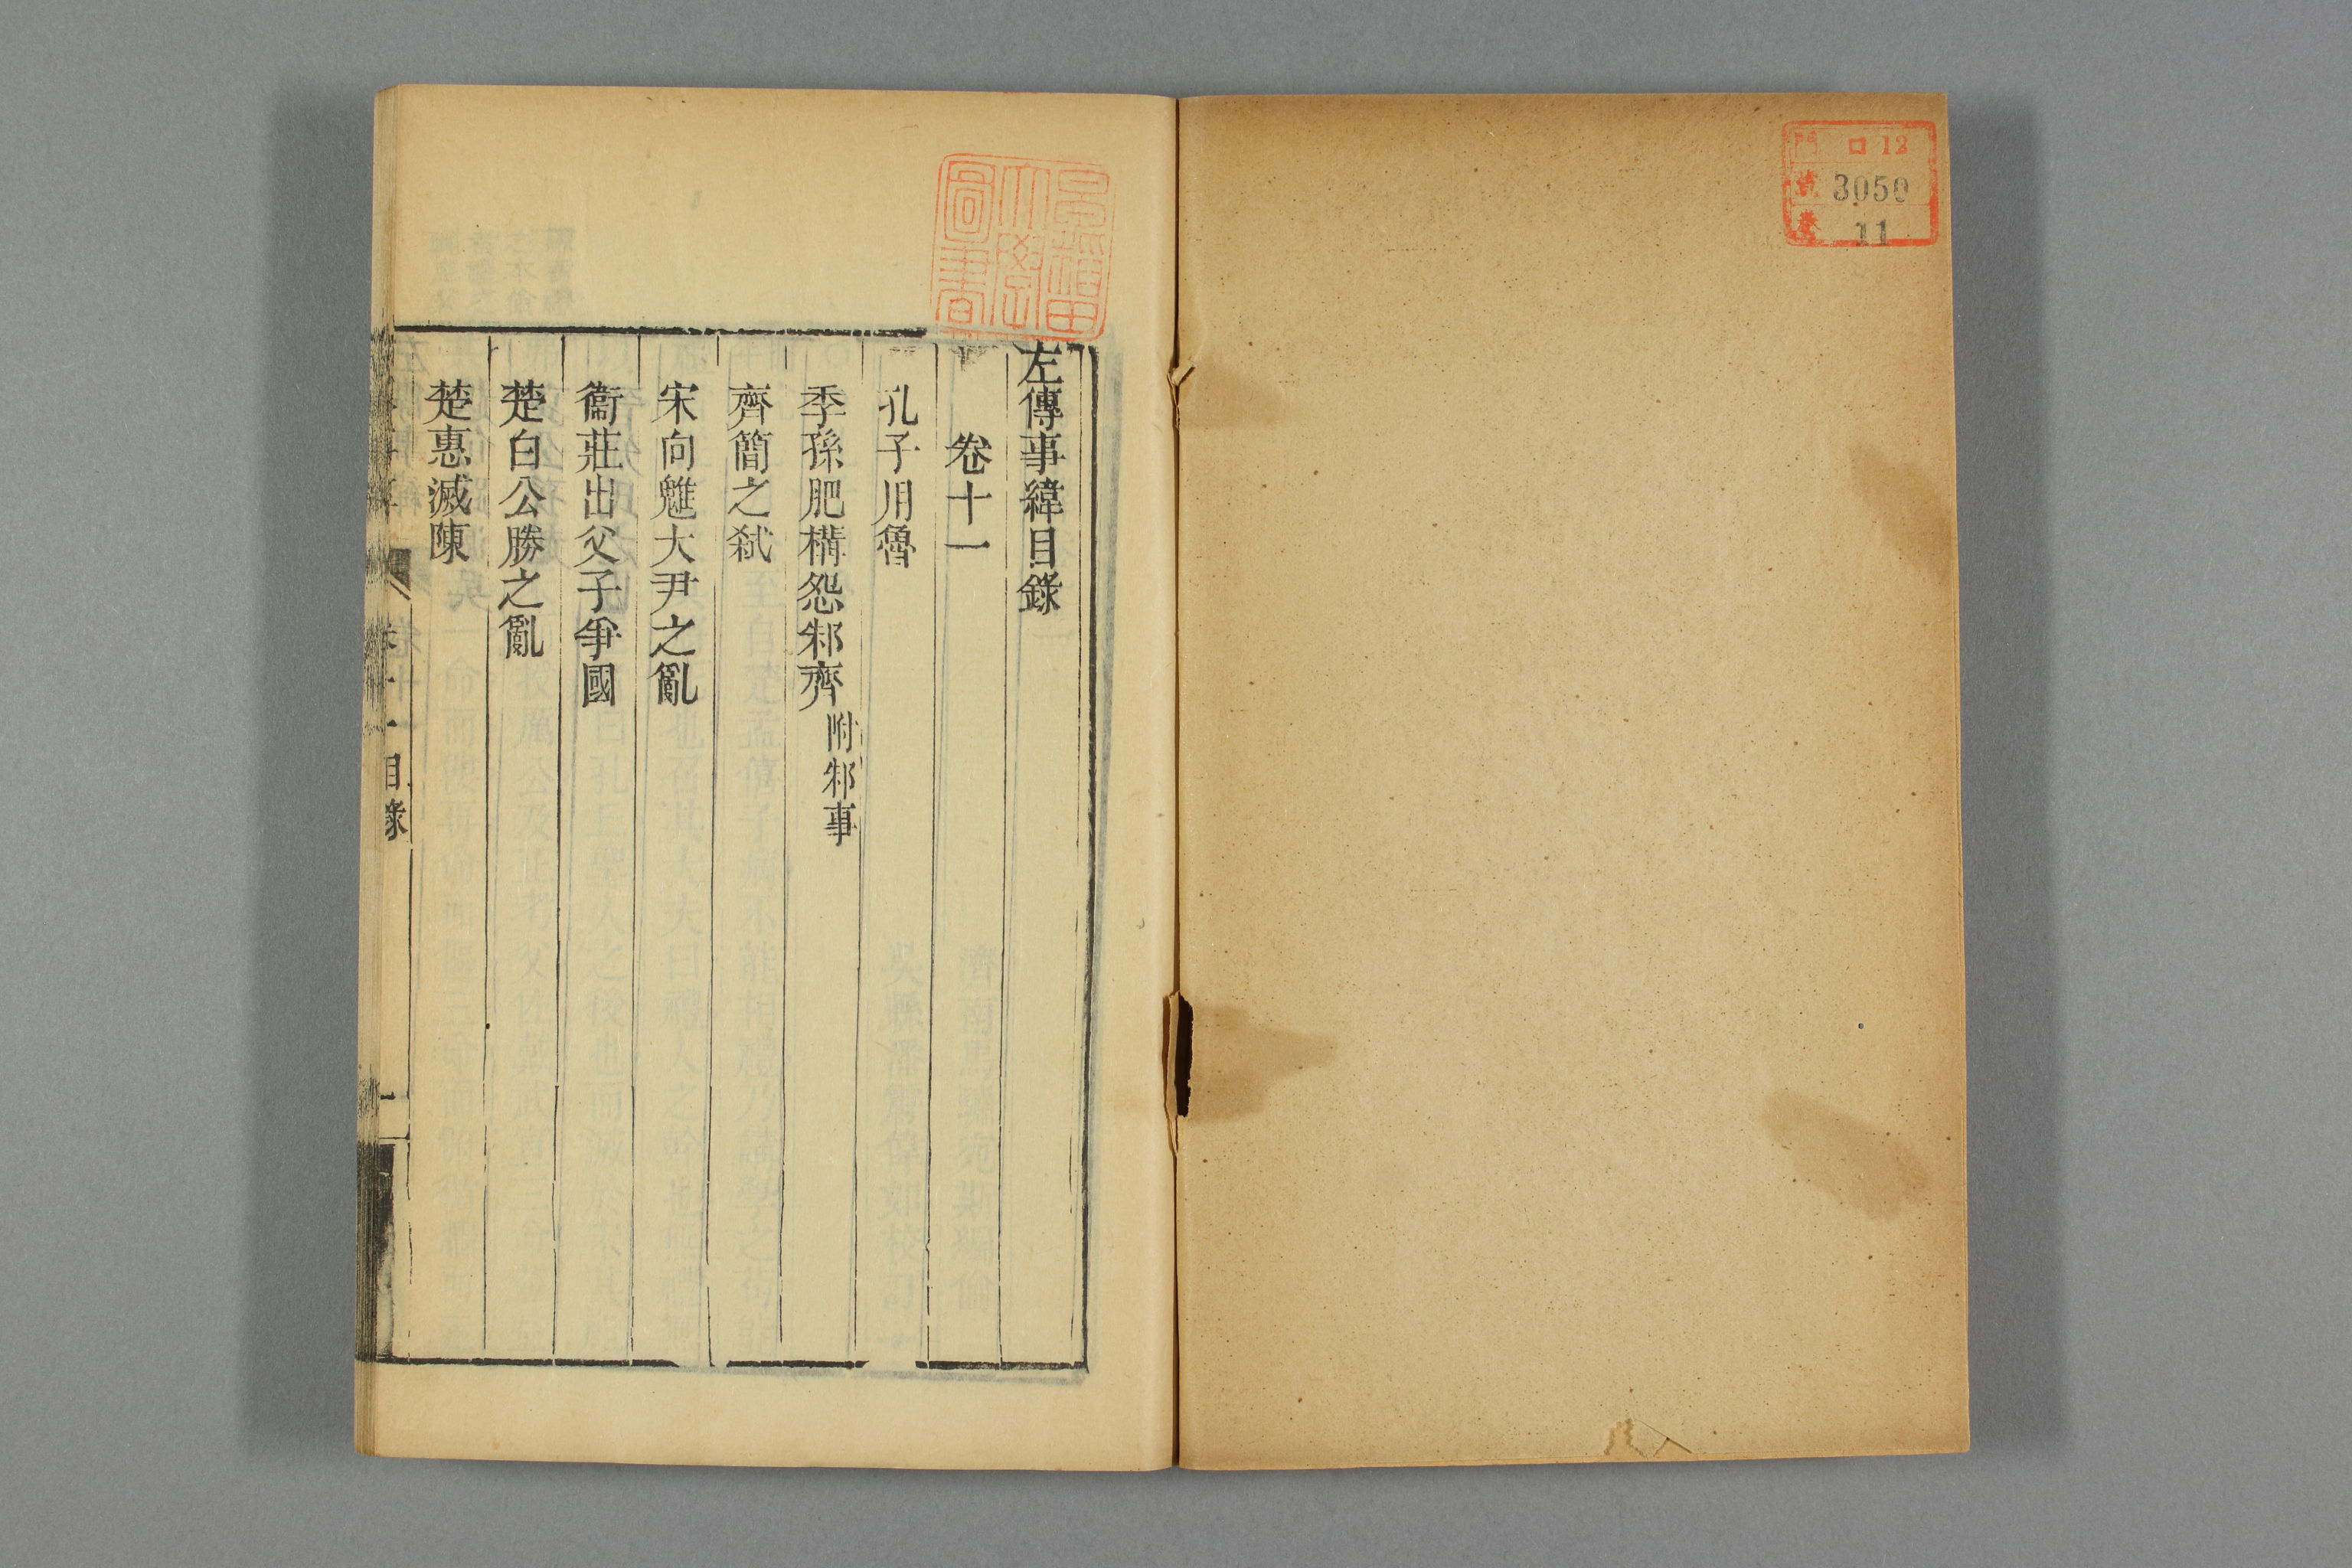 門 口 12
號 3050
卷 11
早稲田
大學
圖書
左傳事緯目錄
卷十一
孔子用魯
季孫肥構怨邾齊 附邾事
齊簡之弑
宋向魋大尹之亂
衞莊出父子爭國
楚白公勝之亂
楚惠滅陳
卷十一目錄
一